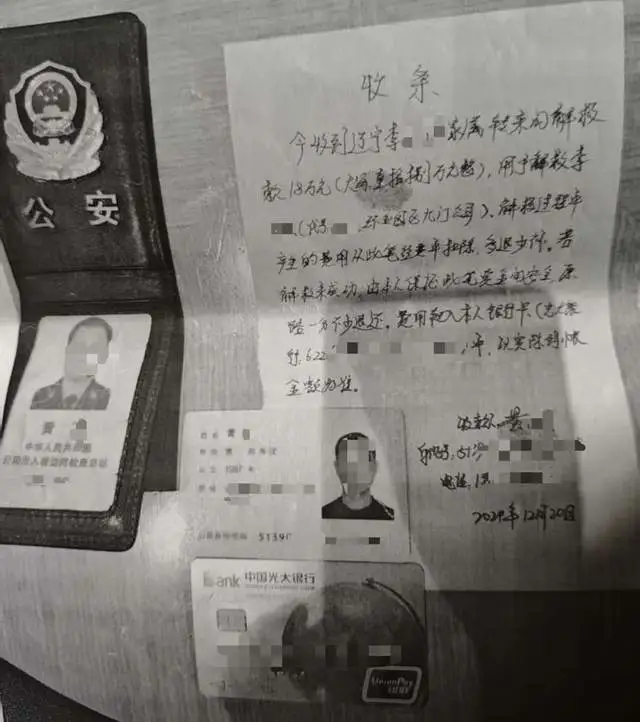 公安
黄
中华人民共和国
收条
今收到辽宁李 家属转来的解救
款18万元(大写: 拾捌万元整),用于解救李
(代号 ,环亚园区大门公司)、解救过程中
产生的费用从此笔经费中扣除,多退少补。若
解救未成功,由本人保证此笔资金的安全,原
路一分不少退还。费用转入本人银行卡(光大银
行:622 )中,以实际到账
金额为准。
收款人:黄
身份证号:51
电话:1
2024年12月20日
姓名 黄
性别 男 民族 汉
出生 1987 年
住址
公民身份号码 5139
Bank 中国光大银行
UnionPay
银联